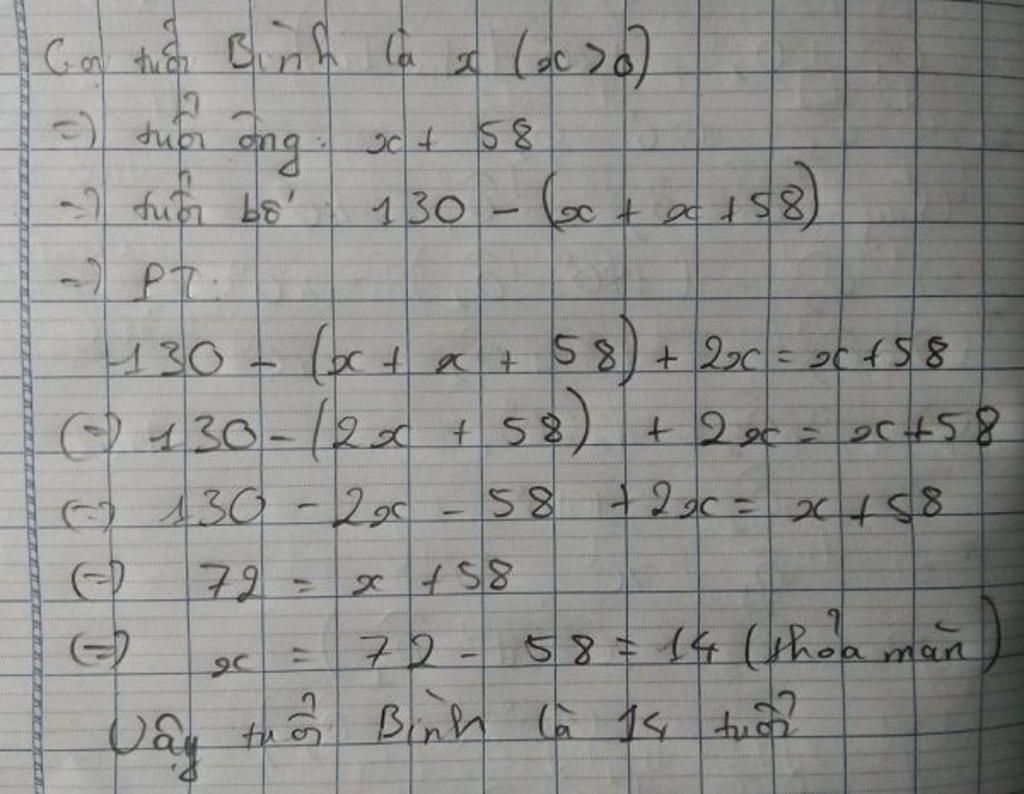 Gọi tuổi Bình là x (x>0)
=) tuổi ông: x + 58
=) tuổi bố: 130 - (x + x + 58)
=) PT:
130 - (x + x + 58) + 2x = x + 58
(=) 130 - (2x + 58) + 2x = x + 58
(=) 130 - 2x - 58 + 2x = x + 58
(=) 72 = x + 58
(=) x = 72 - 58 = 14 (thỏa mãn)
Vậy tuổi Bình là 14 tuổi